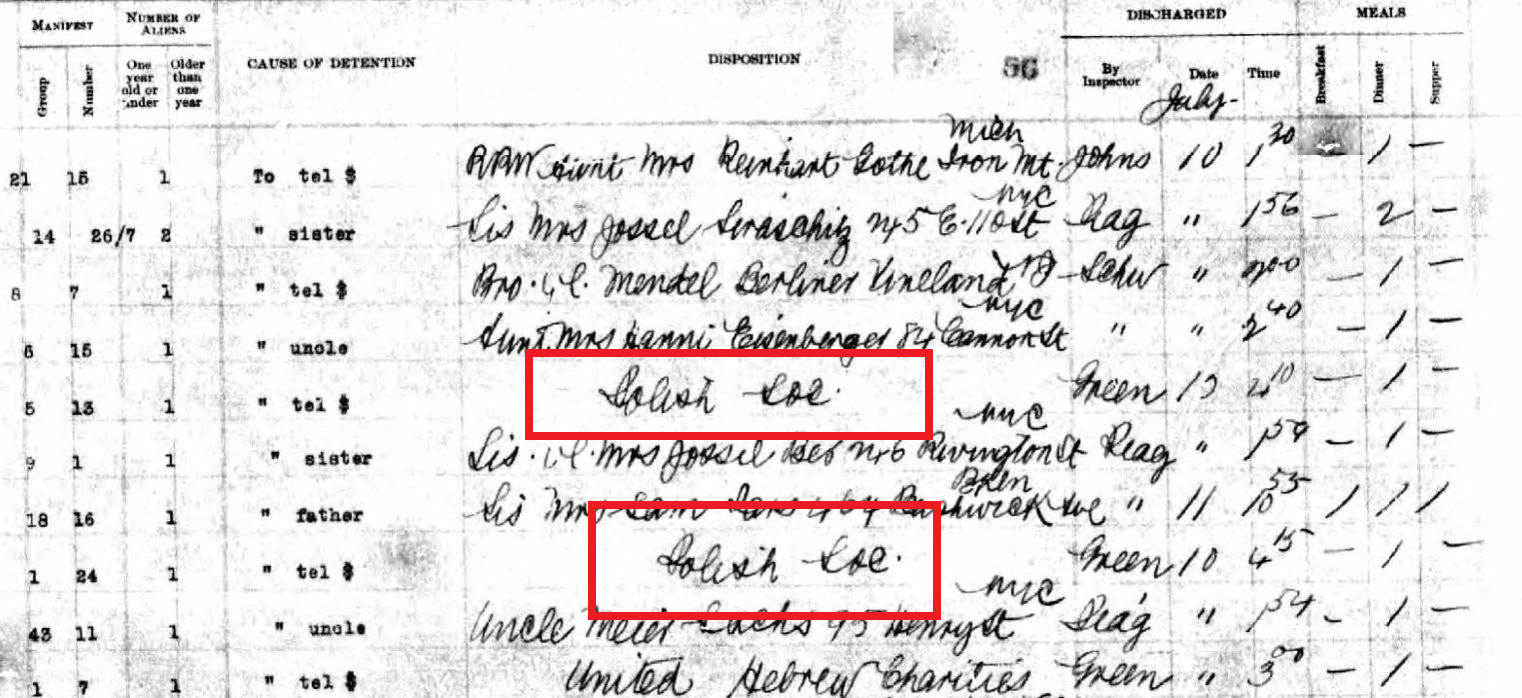 MANIFEST NUMBER OF ALIENS CAUSE OF DETENTION DISPOSITION 56 DISCHARGED MEALS
Group Number One year old or under Older than one year By Inspector Date Time Breakfast Dinner Supper
July-
Mich
21 15 1 To tel $ Aunt Mrs Reinhart Gothe Iron Mt. Johns 10 1 30 1 —
NYC
14 26/7 2 " sister Sis Mrs Jossel E. 110 St Reag " 1 56 — 2 —
8 7 1 " tel $ Bro. Mendel Berliner Vineland NJ Schw " 2 00 — 1 —
NYC
6 15 1 " uncle Aunt Mrs Hanni Eisenberger 84 Cannon St " " 2 40 — 1 —
5 13 1 " tel $ Polish Soc. Green 10 — 1 —
NYC
9 1 1 " sister Sis. Mrs Jossel Rivington St Reag " 1 59 — 1 —
Bklen
18 16 1 " father Sis Mrs Sam Bushwick Ave " 11 10 55 1 1 1
1 24 1 " tel $ Polish Soc. Green 10 4 15 — 1 —
NYC
43 11 1 " uncle Uncle Meier Sachs 95 Henry St Reag " 1 54 — 1 —
1 7 1 " tel $ United Hebrew Charities Green " 3 00 — 1 —